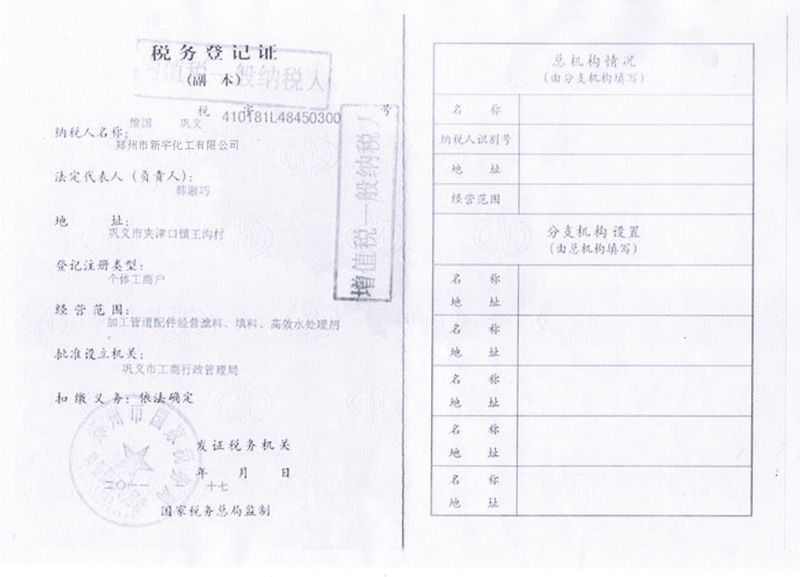 税务登记证
(副 本)
增值税一般纳税人
税 字 410181L48450300 号
豫国 巩义
纳税人名称:
郑州市新宇化工有限公司
法定代表人(负责人):
韩淑巧
地 址:
巩义市夹津口镇王沟村
登记注册类型:
个体工商户
经营范围:
加工管道配件经营滤料、填料、高效水处理剂
批准设立机关:
巩义市工商行政管理局
扣缴义务:依法确定
发证税务机关
年 月 日
二〇一一 十七
国家税务总局监制
增值税一般纳税人
总机构情况
(由分支机构填写)
名 称
纳税人识别号
地 址
经营范围
分支机构设置
(由总机构填写)
名 称
地 址
名 称
地 址
名 称
地 址
名 称
地 址
名 称
地 址